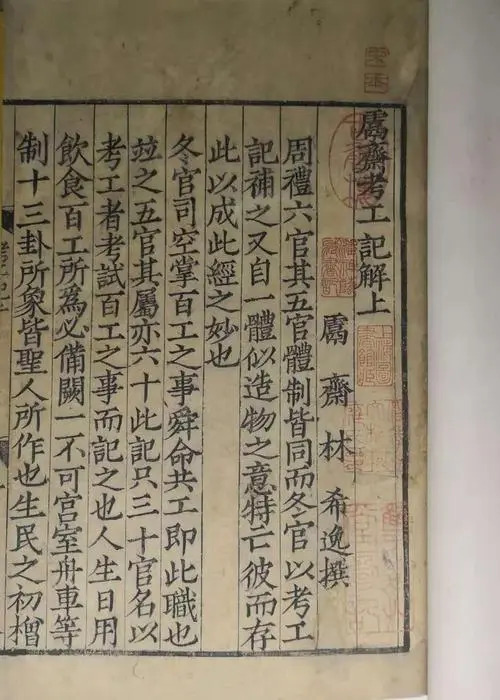 鬳齋考工記解上
鬳齋林希逸撰
周禮六官其五官體制皆同而冬官以考工
記補之又自一體似造物之意特亡彼而存
此以成此經之妙也
冬官司空掌百工之事舜命共工即此職也
竝之五官其屬亦六十此記只三十官名以
考工者考試百工之事而記之也人生日用
飲食百工所爲必備闕一不可宮室舟車等
制十三卦所象皆聖人所作也生民之初橧